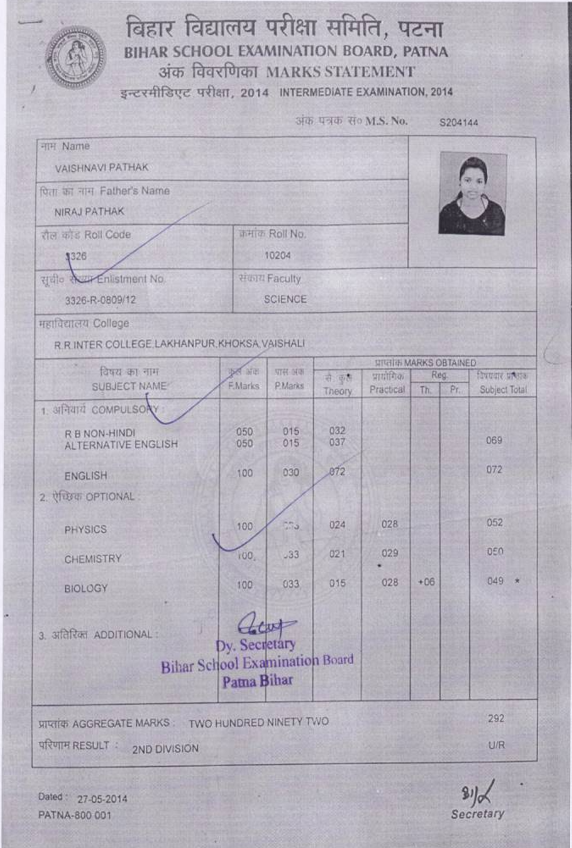 बिहार विद्यालय परीक्षा समिति, पटना
BIHAR SCHOOL EXAMINATION BOARD, PATNA
अंक विवरणिका MARKS STATEMENT
इन्टरमीडिएट परीक्षा, 2014 INTERMEDIATE EXAMINATION, 2014
अंक पत्रक सं० M.S. No. S204144
नाम Name
VAISHNAVI PATHAK
पिता का नाम Father's Name
NIRAJ PATHAK
रौल कोड Roll Code क्रमांक Roll No.
3326 10204
सूची० संख्या Enlistment No. संकाय Faculty
3326-R-0809/12 SCIENCE
महाविद्यालय College
R.R.INTER COLLEGE,LAKHANPUR,KHOKSA,VAISHALI
प्राप्तांक MARKS OBTAINED
विषय का नाम कुल अंक पास अंक प्रायोगिक Reg. विषयवार प्राप्तांक
SUBJECT NAME F.Marks P.Marks Theory Practical Th. Pr. Subject Total
1. अनिवार्य COMPULSORY :
R B NON-HINDI 050 015 032
ALTERNATIVE ENGLISH 050 015 037 069
ENGLISH 100 030 072 072
2. ऐच्छिक OPTIONAL :
PHYSICS 100 024 028 052
CHEMISTRY 100 033 021 029 050
BIOLOGY 100 033 015 028 +06 049 *
3. अतिरिक्त ADDITIONAL :
Dy. Secretary
Bihar School Examination Board
Patna Bihar
प्राप्तांक AGGREGATE MARKS : TWO HUNDRED NINETY TWO 292
परिणाम RESULT : 2ND DIVISION U/R
Dated : 27-05-2014
PATNA-800 001
Secretary